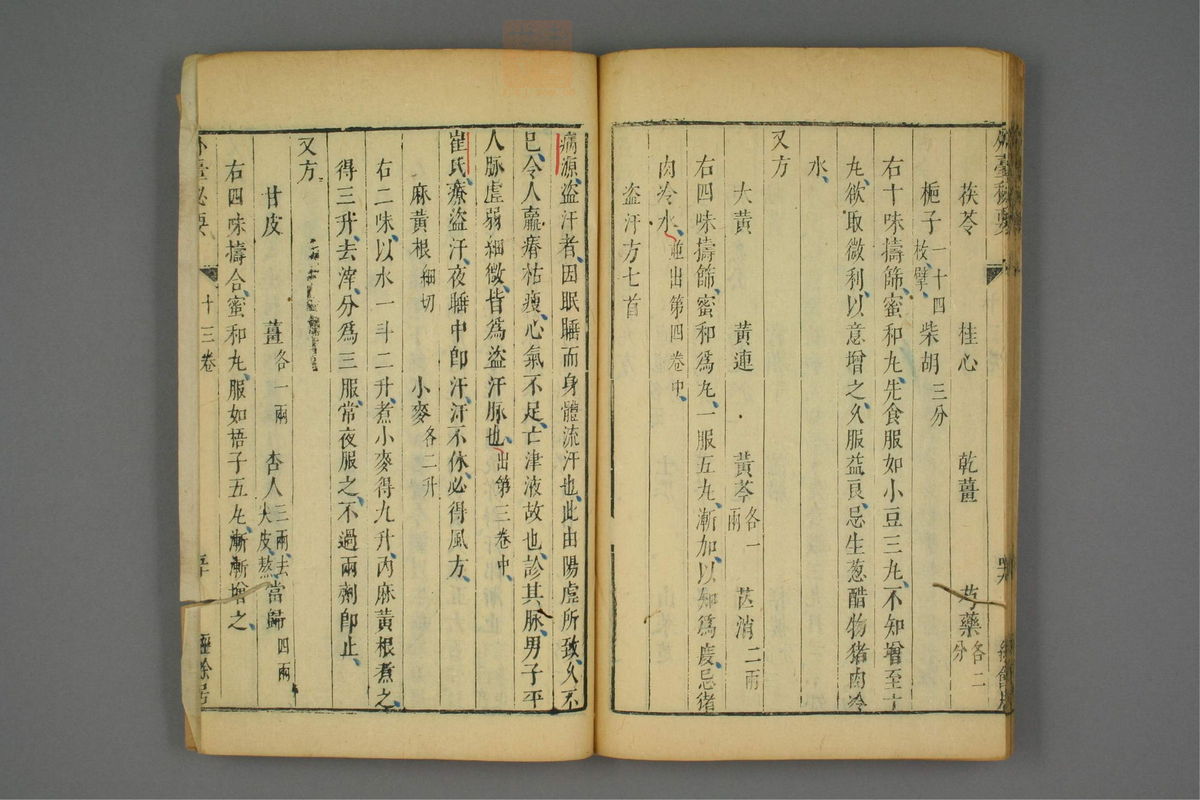 茯苓 桂心 乾薑 芍藥各二分
梔子一十四枚擘 柴胡三分
右十味擣篩蜜和丸先食服如小豆三丸不知增至十
丸欲取微利以意增之久服益良忌生葱醋物猪肉冷
水
又方
大黃 黃連 黃芩各一兩 芒消二兩
右四味擣篩蜜和爲丸一服五丸漸加以知爲度忌猪
肉冷水並出第四卷中
盗汗方七首
病源盗汗者因眠睡而身體流汗也此由陽虛所致久不
已令人羸瘠枯瘦心氣不足亡津液故也診其脉男子平
人脉虛弱細微皆爲盗汗脉也出第三卷中
崔氏療盗汗夜睡中卽汗汗不休必得風方
麻黃根細切 小麥各二升
右二味以水一斗二升煮小麥得九升內麻黃根煮之
得三升去滓分爲三服常夜服之不過兩劑卽止
又方
甘皮 薑各一兩 杏人三兩去大皮熬 當歸四兩
右四味擣合蜜和丸服如梧子五丸漸漸增之
外臺秘要 十三卷